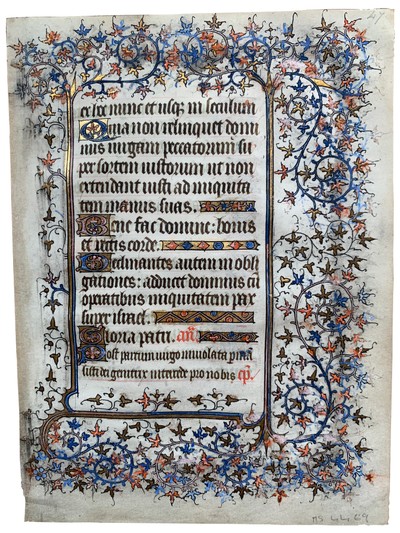 ex hoc nunc et usq; in seculum
Quia non relinquet domi
nus uirgam peccatorum su
per sortem iustorum ut non
extendant iusti ad iniquita
tem manus suas.
Bene fac domine: bonis
et rectis corde.
Declinantes autem in obli
gationes: adducet dominus cū
operātibus iniquitatem pax
super israel.
Gloria patri. añ.
Post partum uirgo inuiolata pmā
sisti dei genitrix intercede pro nobis cp̃.